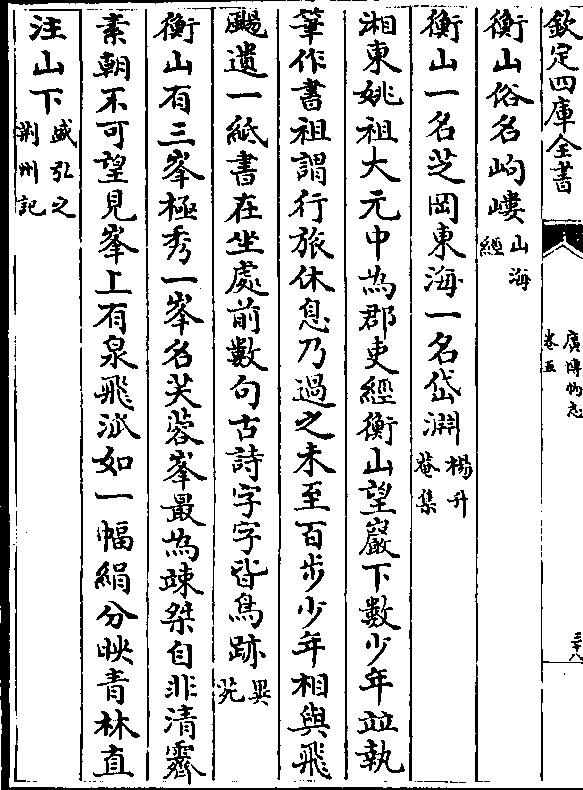 欽定四庫全書
廣博物志
卷五
三十八
衡山俗名岣嶁山海經
衡山一名芝岡東海一名岱淵楊升菴集
湘東姚祖大元中為郡吏經衡山望巖下數少年並執
筆作書祖謂行旅休息乃過之未至百步少年相與飛
颺遺一紙書在坐處前數句古詩字字皆鳥跡異苑
衡山有三峯極秀一峯名芙蓉峯最為竦桀自非清霽
素朝不可望見峯上有泉飛派如一幅絹分映青林直
注山下盛弘之荆州記